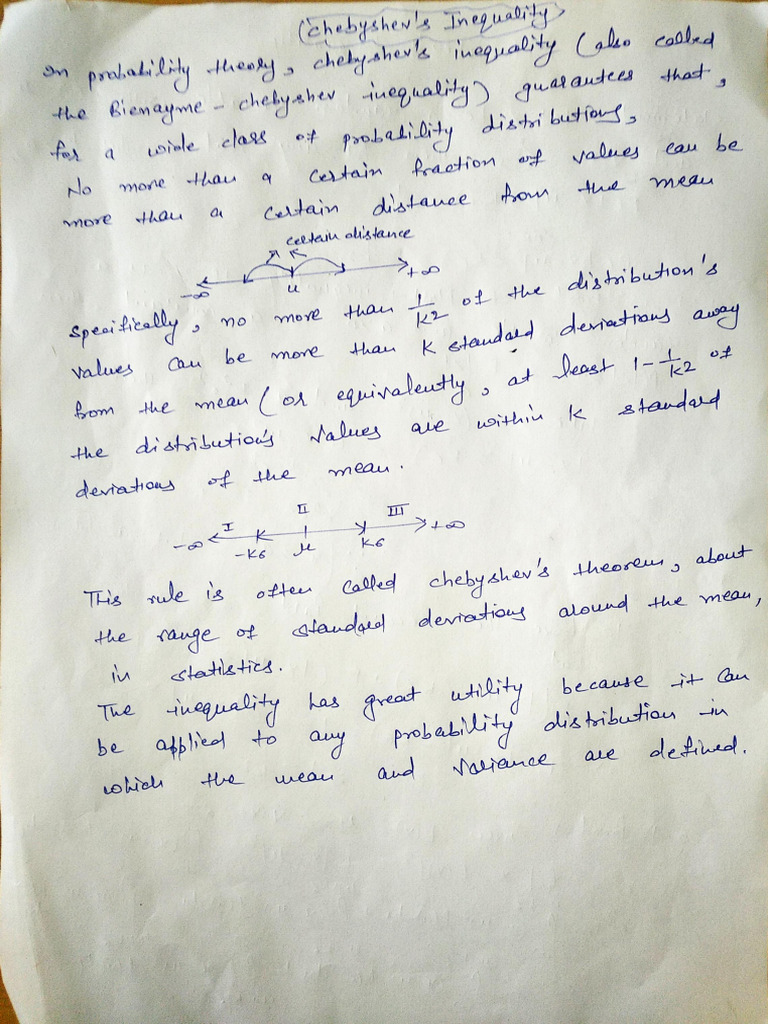 Chebyshev's Inequality
In probability theory, chebyshev's inequality (also called
the Bienayme - chebyshev inequality) guarantees that,
for a wide class of probability distributions,
No more than a certain fraction of values can be
more than a certain distance from the mean
certain distance
-∞ μ +∞
Specifically, no more than 1/k2 of the distribution's
values can be more than k standard deviations away
from the mean (or equivalently, at least 1-1/k2 of
the distribution's values are within k standard
deviations of the mean.
I II III
-∞ -kσ μ kσ +∞
This rule is often called chebyshev's theorem, about
the range of standard deviations around the mean,
in statistics.
The inequality has great utility because it can
be applied to any probability distribution in
which the mean and variance are defined.